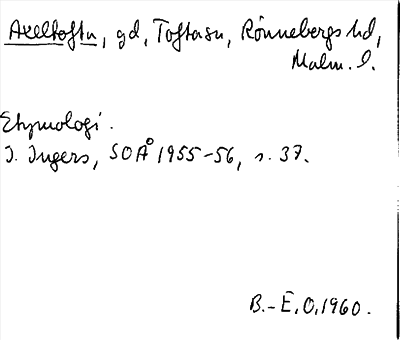 Axeltofta, gd, Toftasu, Rönnebergs hd,
Malm. l.
Etymologi.
I. Ingers, SOÅ 1955-56, s. 37.
B.-E. O. 1960.